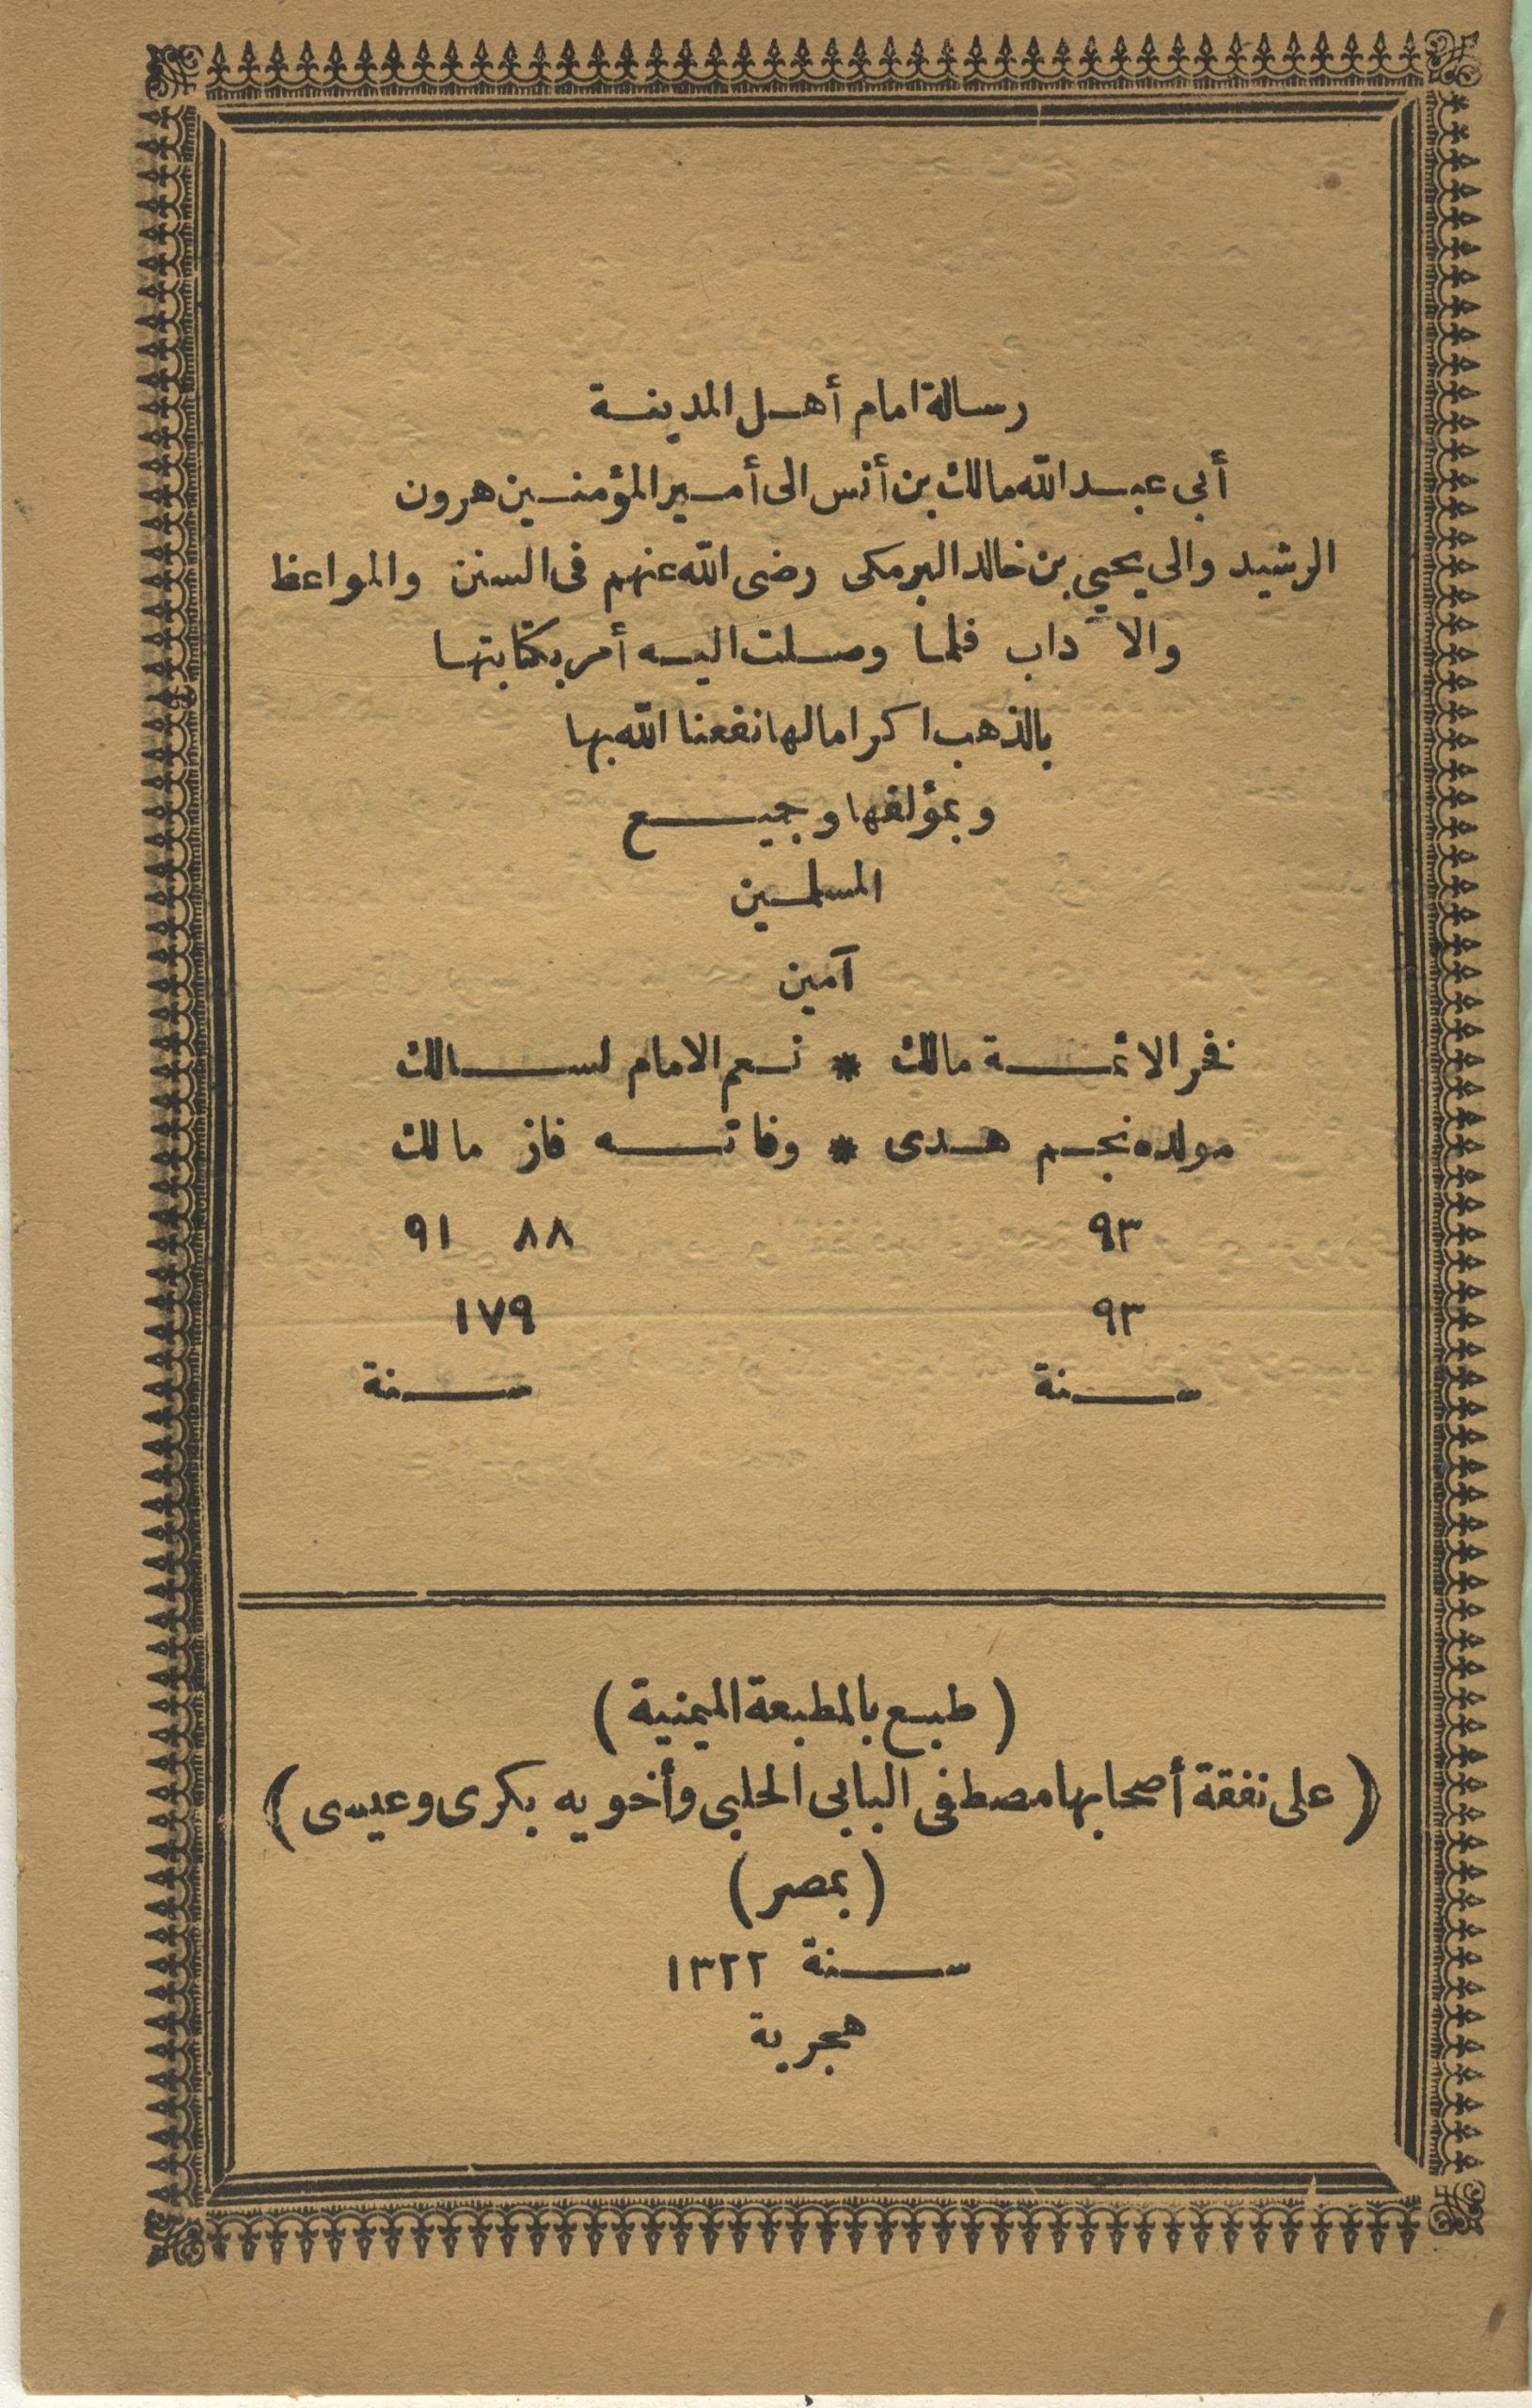 رسالة امام أهل المدينة
أبي عبد الله مالك بن أنس الى أمير المؤمنين هرون
الرشيد والى يحيي بن خالد البرمكى رضى الله عنهم فى السنن والمواعظ
والآداب فلما وصلت اليه أمر بكتابتها
بالذهب اكراما لها نفعنا الله بها
وبمؤلفها وجميع
المسلمين
آمين
فخر الائمة مالك * نعم الامام لسالك
مولده نجم هدى * وفاته فاز مالك
٩٣ ٨٨ ٩١
٩٣ ١٧٩
سنة سنة
(طبع بالمطبعة الميمنية)
(على نفقة أصحابها مصطفى البابى الحلبى وأخويه بكرى وعيسى)
(بمصر)
سنة ١٣٢٢
هجرية